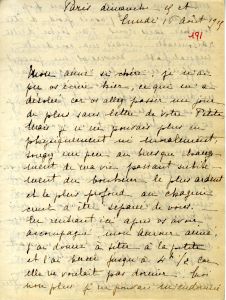 Paris dimanche 15 et
lundi 16 août 19
191
Mon aimé si chéri, je n'ai
pu vous écrire hier, ce qui m'a
désolée car vous allez passer un jour
de plus sans lettre de votre Petite
Mais je n'en pouvais plus ni
physiquement ni moralement,
songez un peu au brusque change-
ment de ma vie, passant subite-
ment du bonheur le plus ardent
et le plus profond, au chagrin
cruel d'être séparée de vous.
En rentrant ici après vous avoir
accompagné, mon heureux aimé,
j'ai donné à téter à la petite
et l'ai bercée jusqu'à 4h ½ car
elle ne voulait pas dormir. Moi
non plus je ne pouvais m'endormir